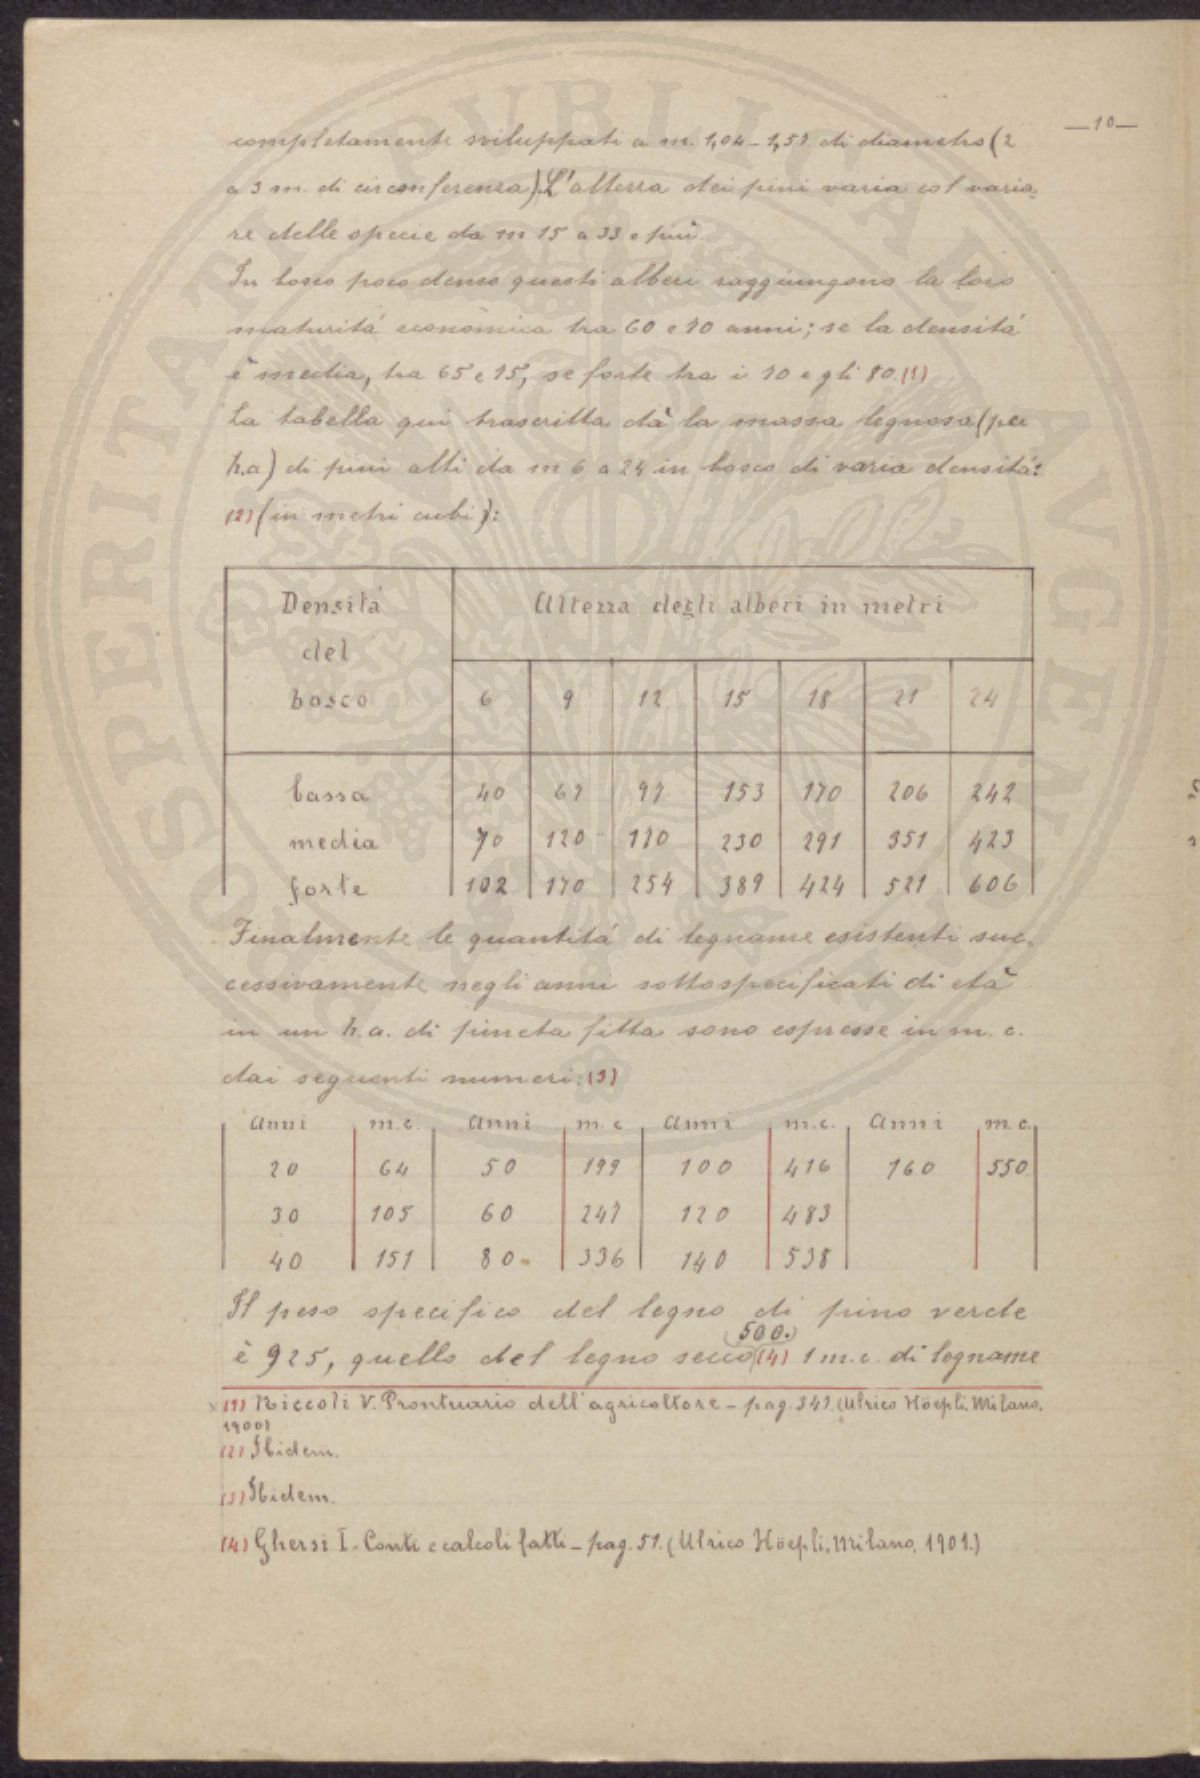 —10—
completamente sviluppati a m. 1,04-1,57 di diametro (2
a 3 m. di circonferenza). L'altezza dei pini varia col varia
re delle specie da m 15 a 33 e più.
In bosco poco denso questi alberi raggiungono la loro
maturitá economica tra 60 e 70 anni; se la densitá
è media, tra 65 e 75, se forte tra i 70 e gli 80.(1)
La tabella qui trascritta dà la massa legnosa (per
h.a) di pini alti da m 6 a 24 in bosco di varia densitá:
(2) (in metri cubi):
Densitá Altezza degli alberi in metri
del
bosco 6 9 12 15 18 21 24
bassa 40 67 97 153 170 206 242
media 70 120 170 230 291 351 423
forte 102 170 254 389 424 521 606
Finalmente le quantitá di legname esistenti suc-
cessivamente negli anni sottospecificati di età
in un h.a. di pineta fitta sono espresse in m. c.
dai seguenti numeri: (3)
Anni m.c. Anni m.c Anni m.c. Anni m.c.
20 64 50 199 100 416 160 550
30 105 60 247 120 483
40 151 80 336 140 538
Il peso specifico del legno di pino verde
500.
è 925, quello del legno secco (4) 1 m.c. di legname
(1) Niccoli V. Prontuario dell'agricoltore - pag. 347. (Ulrico Hoepli, Milano,
1900)
(2) Ibidem.
(3) Ibidem.
(4) Ghersi I. Conti e calcoli fatti - pag. 51. (Ulrico Höepli, Milano, 1901.)